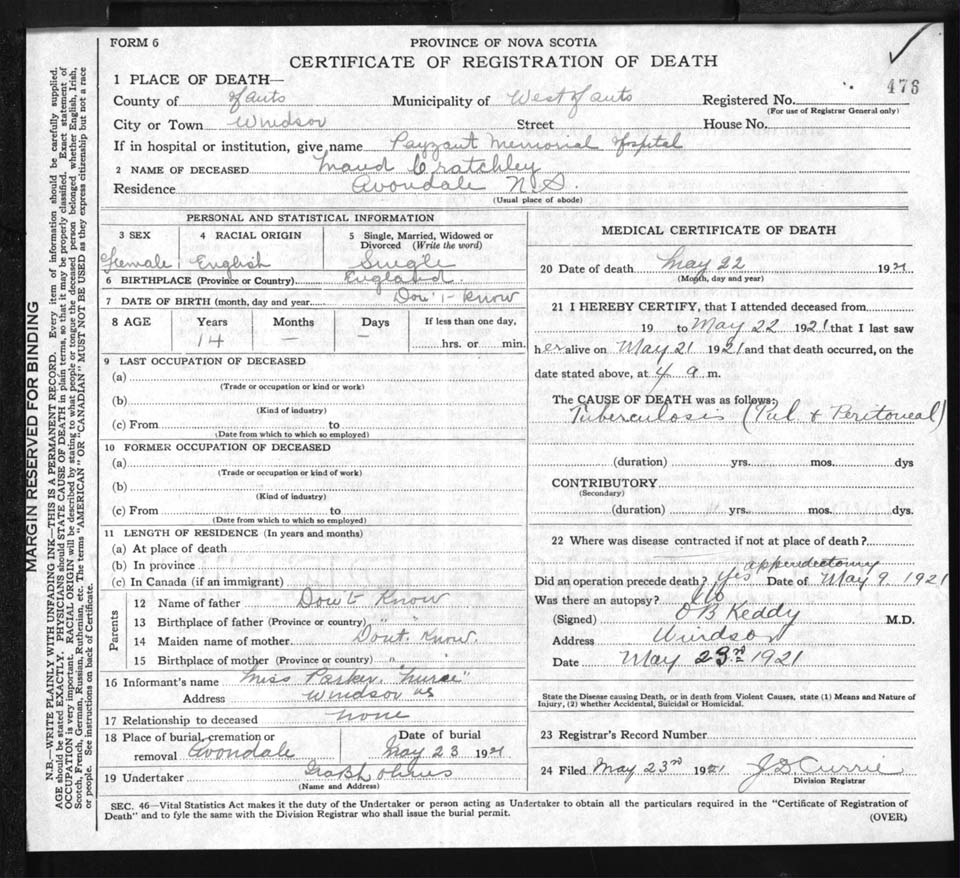 FORM 6
PROVINCE OF NOVA SCOTIA
CERTIFICATE OF REGISTRATION OF DEATH
476
1 PLACE OF DEATH—
County of Hants Municipality of West Hants Registered No.
(For use of Registrar General only)
City or Town Windsor Street House No.
If in hospital or institution, give name Payzant Memorial Hospital
2 NAME OF DECEASED Maud Cratchley
Residence Avondale N.S.
(Usual place of abode)
PERSONAL AND STATISTICAL INFORMATION
3 SEX 4 RACIAL ORIGIN 5 Single, Married, Widowed or Divorced (Write the word)
Female English Single
6 BIRTHPLACE (Province or Country) England
7 DATE OF BIRTH (month, day and year) Don't Know
8 AGE Years Months Days If less than one day,
14 — — hrs. or min.
9 LAST OCCUPATION OF DECEASED
(a)
(Trade or occupation or kind or work)
(b)
(Kind of industry)
(c) From to
(Date from which to which so employed)
10 FORMER OCCUPATION OF DECEASED
(a)
(Trade or occupation or kind of work)
(b)
(Kind of industry)
(c) From to
(Date from which to which so employed)
11 LENGTH OF RESIDENCE (In years and months)
(a) At place of death
(b) In province
(c) In Canada (if an immigrant)
Parents
12 Name of father Dont Know
13 Birthplace of father (Province or country) " "
14 Maiden name of mother Dont Know.
15 Birthplace of mother (Province or country) "
16 Informant's name Miss Parker "nurse"
Address Windsor NS
17 Relationship to deceased none
18 Place of burial, cremation or removal Avondale
Date of burial May 23 1921
19 Undertaker
(Name and Address)
MEDICAL CERTIFICATE OF DEATH
20 Date of death May 22 1921
(Month, day and year)
21 I HEREBY CERTIFY, that I attended deceased from
19 to May 22 1921 that I last saw
her alive on May 21 1921 and that death occurred, on the
date stated above, at 4 a m.
The CAUSE OF DEATH was as follows:
Tuberculosis (Pul & Peritoneal)
(duration) yrs. mos. dys
CONTRIBUTORY
(Secondary)
(duration) yrs. mos. dys.
22 Where was disease contracted if not at place of death?
appendectomy
Did an operation precede death? Yes Date of May 9 1921
Was there an autopsy? No
(Signed) O B Keddy M.D.
Address Windsor
Date May 23rd 1921
State the Disease causing Death, or in death from Violent Causes, state (1) Means and Nature of
Injury, (2) whether Accidental, Suicidal or Homicidal.
23 Registrar's Record Number
24 Filed May 23rd 1921 J D Currie
Division Registrar
SEC. 46—Vital Statistics Act makes it the duty of the Undertaker or person acting as Undertaker to obtain all the particulars required in the "Certificate of Registration of
Death" and to fyle the same with the Division Registrar who shall issue the burial permit.
(OVER)
MARGIN RESERVED FOR BINDING
N.B.—WRITE PLAINLY WITH UNFADING INK—THIS IS A PERMANENT RECORD. Every item of information should be carefully supplied.
AGE should be stated EXACTLY. PHYSICIANS should STATE CAUSE OF DEATH in plain terms, so that it may be properly classified. Exact statement of
OCCUPATION is very important. RACIAL ORIGIN will be described by stating to what people or tongue the deceased person belonged whether English, Irish,
Scotch, French, German, Russian, Ruthenian, etc. The terms "AMERICAN" OR "CANADIAN" MUST NOT BE USED as they express citizenship but not a race
or people. See instructions on back of Certificate.